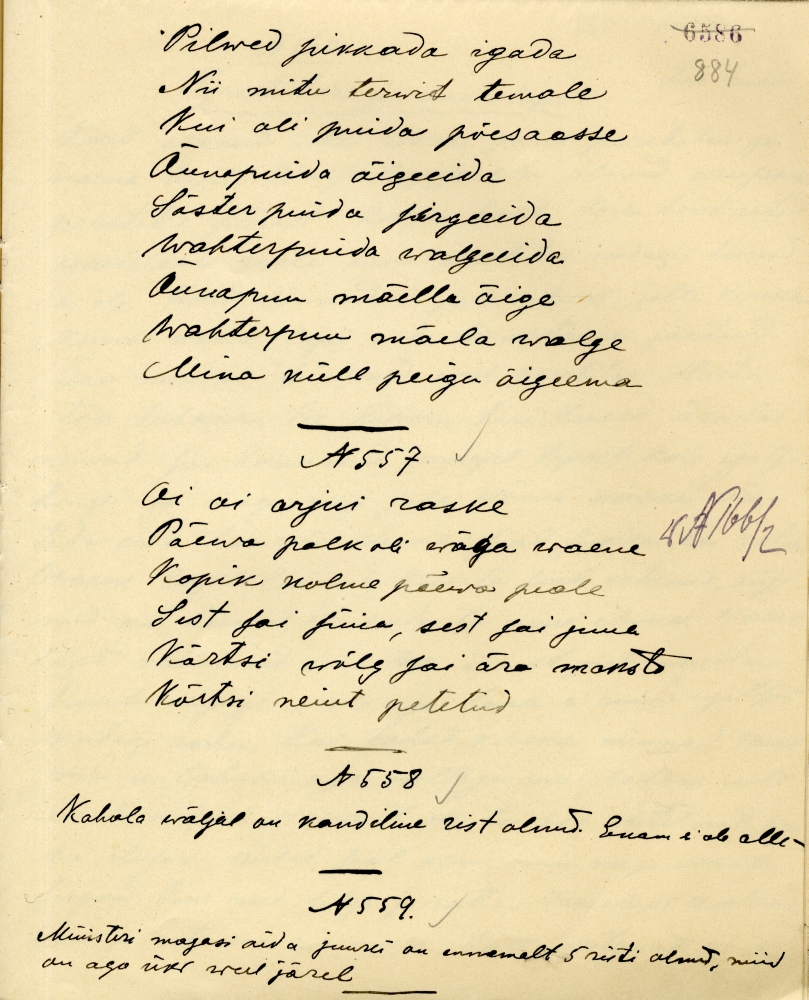 6586
884
Pilwed pikkada igada
Nii mitu terwist temale
Kui oli puida põesaasse
Õunapuida õigeeida
Sõster puida järgeeida
Wahterpuida walgeeida
Õunapuu mäella õige
Wahterpuu mäela walge
Mina küll peigu õigeema
N 557
Oi oi orjus raske
Päewa palk oli wäga waene
Kopik kolme päewa peale
Sest sai süia, sest sai juua
Kõrtsi wõlg sai ära maksto
Kõrtsi neiut petetud
N 558
Kahala wäljal on kandiline rist olnud. Enam ei ole alle-
N 559.
Ministri magasi aida juures on ennemalt 5 risti olnud, nüid
on aga üks weel järel